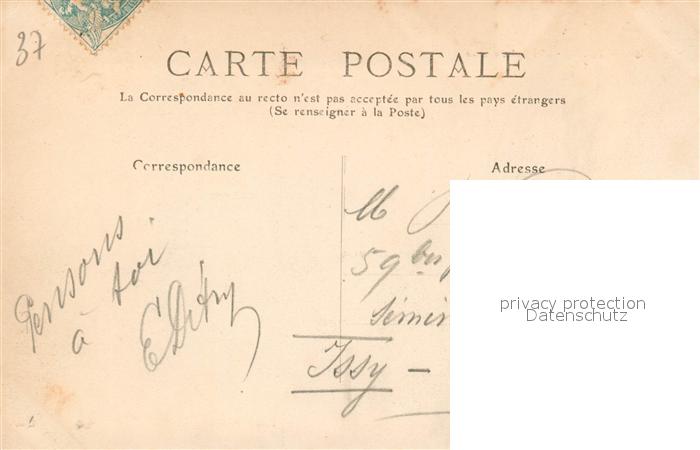 37
CARTE POSTALE
La Correspondance au recto n'est pas acceptée par tous les pays étrangers
(Se renseigner à la Poste)
Correspondance
Adresse
Pensons
à toi
M
59 bis
Issy -
privacy protection
Datenschutz